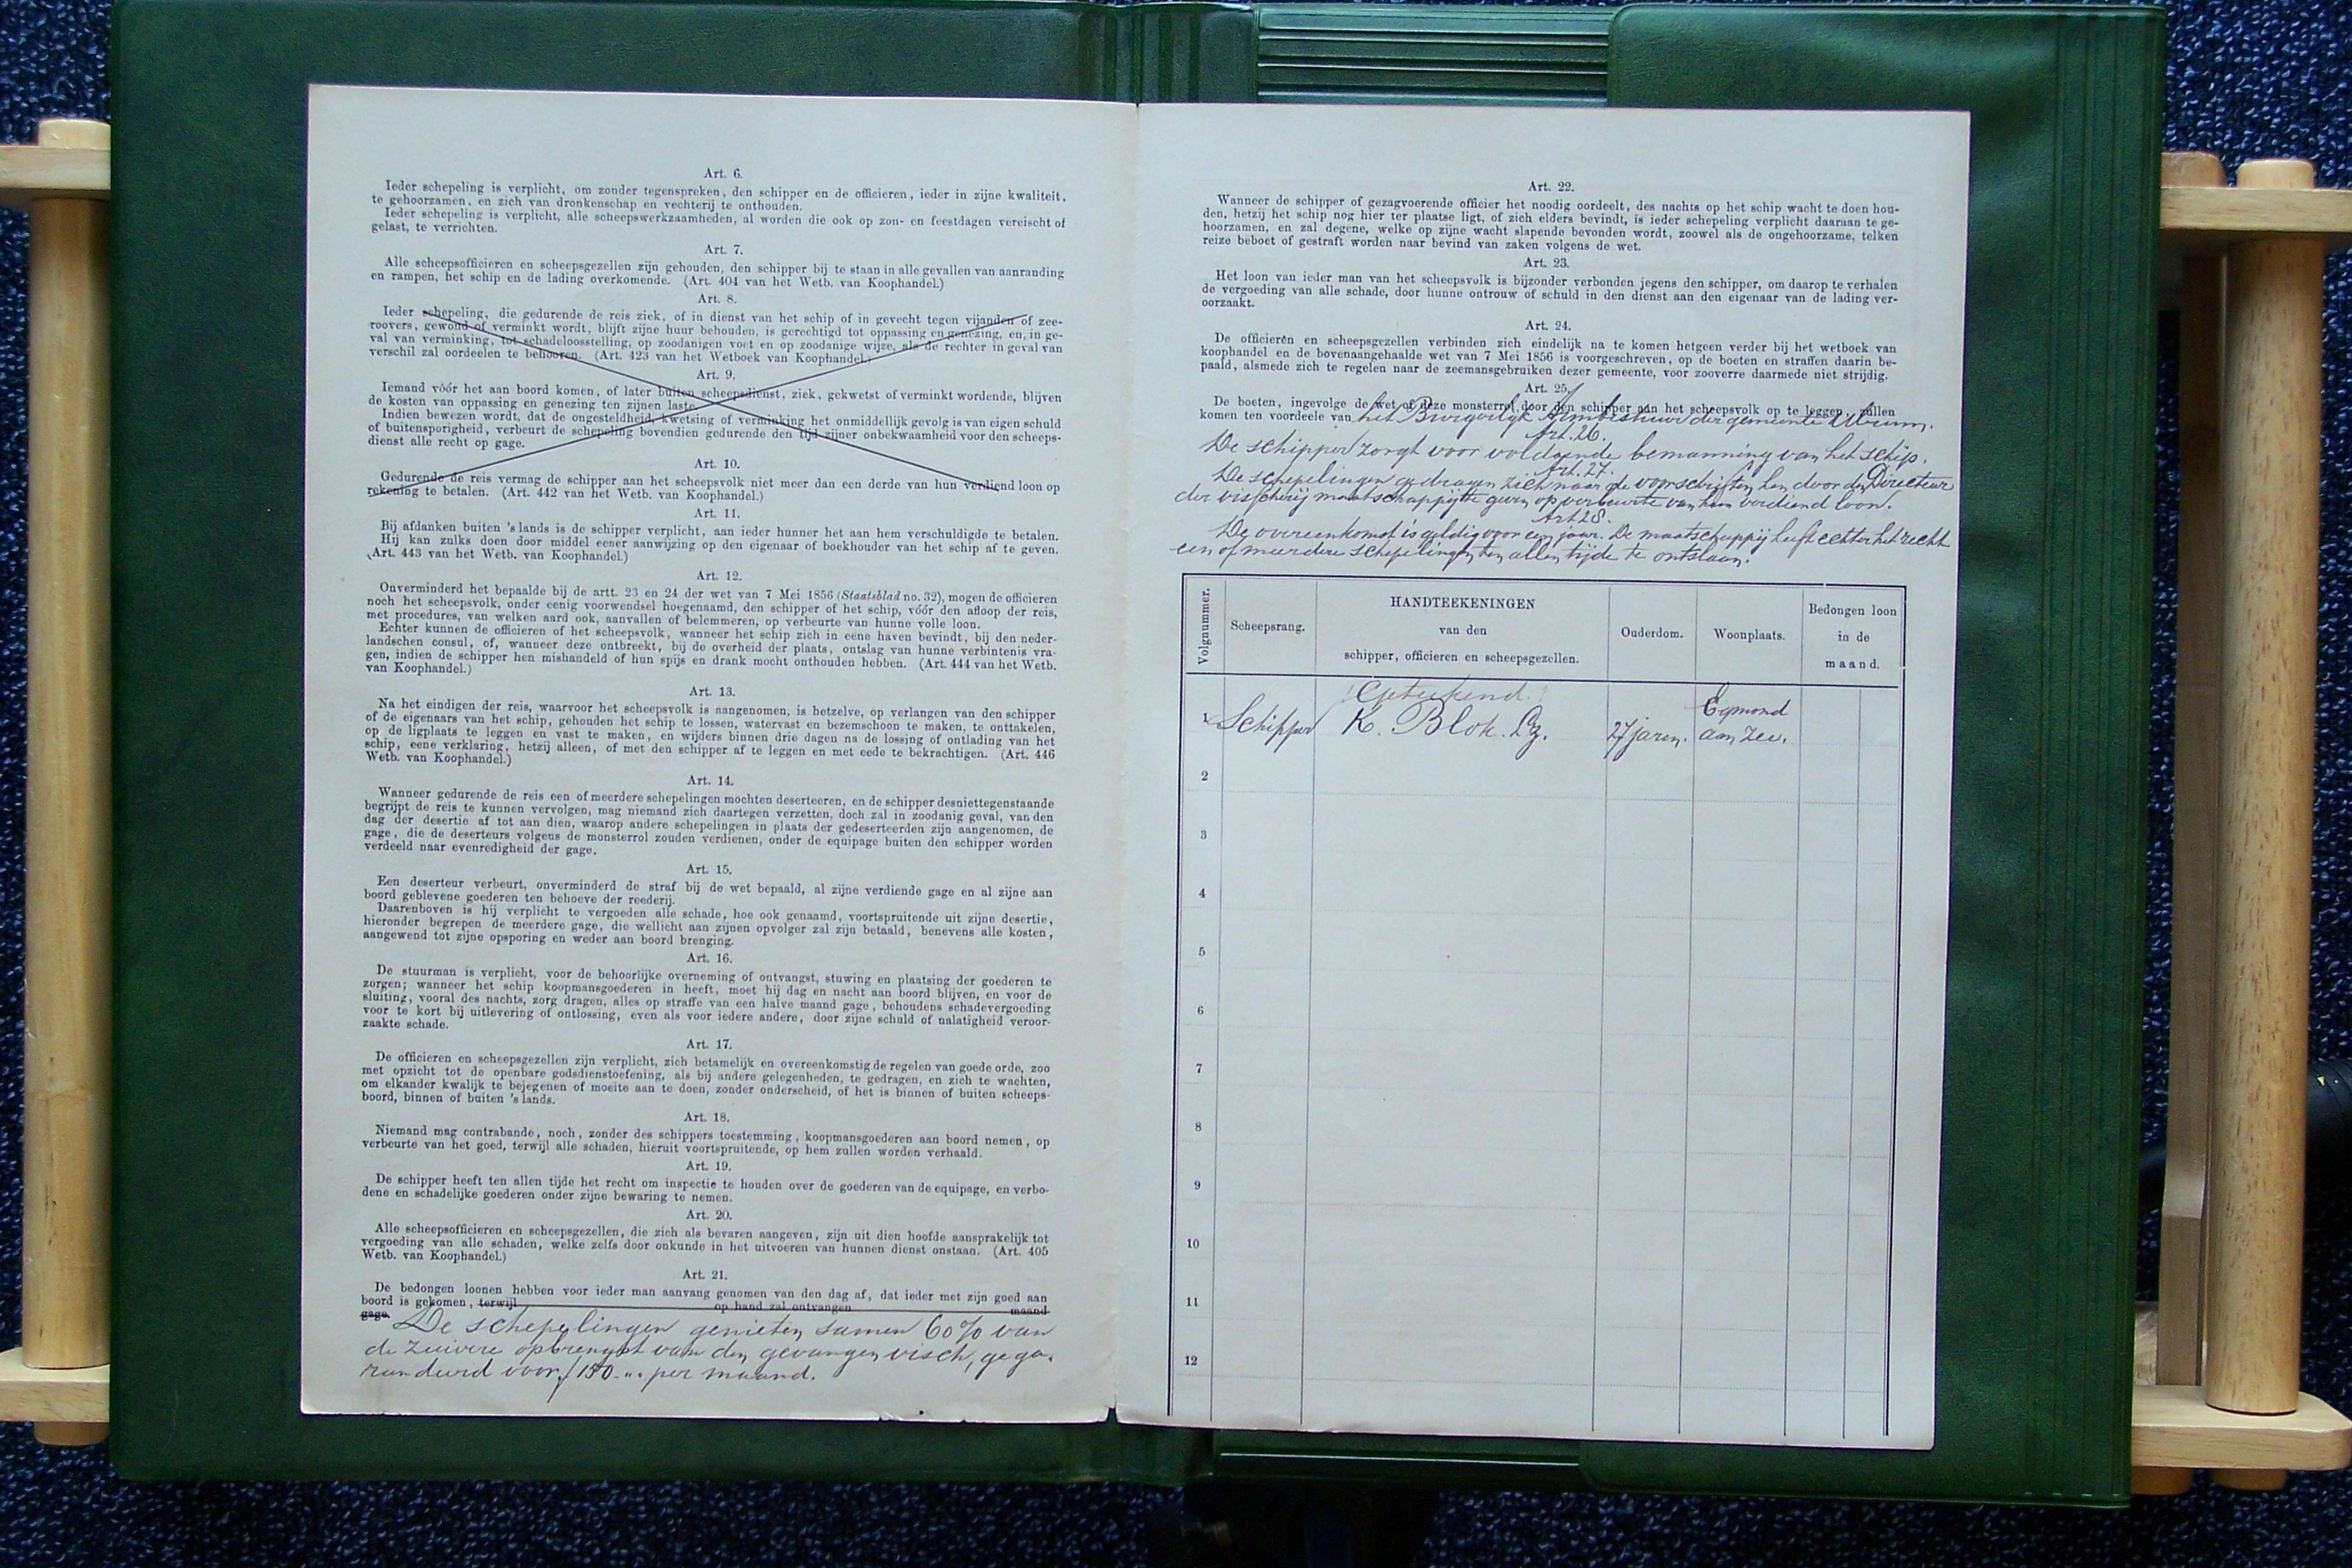 Art. 6.
Ieder schepeling is verplicht, om zonder tegenspreken, den schipper en de officieren, ieder in zijne kwaliteit,
te gehoorzamen, en zich van dronkenschap en vechterij te onthouden.
Ieder schepeling is verplicht, alle scheepswerkzaamheden, al worden die ook op zon- en feestdagen vereischt of
gelast, te verrichten.
Art. 7.
Alle scheepsofficieren en scheepsgezellen zijn gehouden, den schipper bij te staan in alle gevallen van aanranding
en rampen, het schip en de lading overkomende. (Art. 404 van het Wetb. van Koophandel.)
Art. 8.
Ieder schepeling, die gedurende de reis ziek, of in dienst van het schip of in gevecht tegen vijanden of zee-
roovers, gewond of verminkt wordt, blijft zijne huur behouden, is gerechtigd tot oppassing en genezing, en, in ge-
val van verminking, tot schadeloosstelling, op zoodanigen voet en op zoodanige wijze, als de rechter in geval van
verschil zal oordeelen te behooren. (Art. 423 van het Wetboek van Koophandel.)
Art. 9.
Iemand vóór het aan boord komen, of later buiten scheepsdienst, ziek, gekwetst of verminkt wordende, blijven
de kosten van oppassing en genezing ten zijnen laste.
Indien bewezen wordt, dat de ongesteldheid, kwetsing of verminking het onmiddellijk gevolg is van eigen schuld
of buitensporigheid, verbeurt de schepeling bovendien gedurende den tijd zijner onbekwaamheid voor den scheeps-
dienst alle recht op gage.
Art. 10.
Gedurende de reis vermag de schipper aan het scheepsvolk niet meer dan een derde van hun verdiend loon op
rekening te betalen. (Art. 442 van het Wetb. van Koophandel.)
Art. 11.
Bij afdanken buiten 's lands is de schipper verplicht, aan ieder hunner het aan hem verschuldigde te betalen.
Hij kan zulks doen door middel eener aanwijzing op den eigenaar of boekhouder van het schip af te geven.
(Art. 443 van het Wetb. van Koophandel.)
Art. 12.
Onverminderd het bepaalde bij de artt. 23 en 24 der wet van 7 Mei 1856 (Staatsblad no. 32), mogen de officieren
noch het scheepsvolk, onder eenig voorwendsel hoegenaamd, den schipper of het schip, vóór den afloop der reis,
met procedures, van welken aard ook, aanvallen of belemmeren, op verbeurte van hunne volle loon.
Echter kunnen de officieren of het scheepsvolk, wanneer het schip zich in eene haven bevindt, bij den neder-
landschen consul, of, wanneer deze ontbreekt, bij de overheid der plaats, ontslag van hunne verbintenis vra-
gen, indien de schipper hen mishandeld of hun spijs en drank mocht onthouden hebben. (Art. 444 van het Wetb.
van Koophandel.)
Art. 13.
Na het eindigen der reis, waarvoor het scheepsvolk is aangenomen, is hetzelve, op verlangen van den schipper
of de eigenaars van het schip, gehouden het schip te lossen, watervast en bezemschoon te maken, te onttakelen,
op de ligplaats te leggen en vast te maken, en wijders binnen drie dagen na de lossing of ontlading van het
schip, eene verklaring, hetzij alleen, of met den schipper af te leggen en met eede te bekrachtigen. (Art. 446
Wetb. van Koophandel.)
Art. 14.
Wanneer gedurende de reis een of meerdere schepelingen mochten deserteeren, en de schipper desniettegenstaande
begrijpt de reis te kunnen vervolgen, mag niemand zich daartegen verzetten, doch zal in zoodanig geval, van den
dag der desertie af tot aan dien, waarop andere schepelingen in plaats der gedeserteerden zijn aangenomen, de
gage, die de deserteurs volgens de monsterrol zouden verdienen, onder de equipage buiten den schipper worden
verdeeld naar evenredigheid der gage.
Art. 15.
Een deserteur verbeurt, onverminderd de straf bij de wet bepaald, al zijne verdiende gage en al zijne aan
boord geblevene goederen ten behoeve der reederij.
Daarenboven is hij verplicht te vergoeden alle schade, hoe ook genaamd, voortspruitende uit zijne desertie,
hieronder begrepen de meerdere gage, die wellicht aan zijnen opvolger zal zijn betaald, benevens alle kosten,
aangewend tot zijne opsporing en weder aan boord brenging.
Art. 16.
De stuurman is verplicht, voor de behoorlijke overneming of ontvangst, stuwing en plaatsing der goederen te
zorgen; wanneer het schip koopmansgoederen in heeft, moet hij dag en nacht aan boord blijven, en voor de
sluiting, vooral des nachts, zorg dragen, alles op straffe van een halve maand gage, behoudens schadevergoeding
voor te kort bij uitlevering of ontlossing, even als voor iedere andere, door zijne schuld of nalatigheid veroor-
zaakte schade.
Art. 17.
De officieren en scheepsgezellen zijn verplicht, zich betamelijk en overeenkomstig de regelen van goede orde, zoo
met opzicht tot de openbare godsdienstoefening, als bij andere gelegenheden, te gedragen, en zich te wachten,
om elkander kwalijk te bejegenen of moeite aan te doen, zonder onderscheid, of het is binnen of buiten scheeps-
boord, binnen of buiten 's lands.
Art. 18.
Niemand mag contrabande, noch, zonder des schippers toestemming, koopmansgoederen aan boord nemen, op
verbeurte van het goed, terwijl alle schaden, hieruit voortspruitende, op hem zullen worden verhaald.
Art. 19.
De schipper heeft ten allen tijde het recht om inspectie te houden over de goederen van de equipage, en verbo-
dene en schadelijke goederen onder zijne bewaring te nemen.
Art. 20.
Alle scheepsofficieren en scheepsgezellen, die zich als bevaren aangeven, zijn uit dien hoofde aansprakelijk tot
vergoeding van alle schaden, welke zelfs door onkunde in het uitvoeren van hunnen dienst onstaan. (Art. 405
Wetb. van Koophandel.)
Art. 21.
De bedongen loonen hebben voor ieder man aanvang genomen van den dag af, dat ieder met zijn goed aan
boord is gekomen, terwijl op hand zal ontvangen maand
gage.
De schepelingen genieten samen 60% van
de zuivere opbrengst van den gevangen visch, gega-
randeerd voor ƒ 150 -"- per maand.
Art. 22.
Wanneer de schipper of gezagvoerende officier het noodig oordeelt, des nachts op het schip wacht te doen hou-
den, hetzij het schip nog hier ter plaatse ligt, of zich elders bevindt, is ieder schepeling verplicht daaraan te ge-
hoorzamen, en zal degene, welke op zijne wacht slapende bevonden wordt, zoowel als de ongehoorzame, telken
reize beboet of gestraft worden naar bevind van zaken volgens de wet.
Art. 23.
Het loon van ieder man van het scheepsvolk is bijzonder verbonden jegens den schipper, om daarop te verhalen
de vergoeding van alle schade, door hunne ontrouw of schuld in den dienst aan den eigenaar van de lading ver-
oorzaakt.
Art. 24.
De officierên en scheepsgezellen verbinden zich eindelijk na te komen hetgeen verder bij het wetboek van
koophandel en de bovenaangehaalde wet van 7 Mei 1856 is voorgeschreven, op de boeten en straffen daarin be-
paald, alsmede zich te regelen naar de zeemansgebruiken dezer gemeente, voor zooverre daarmede niet strijdig.
Art. 25.
De boeten, ingevolge de wet of deze monsterrol door den schipper aan het scheepsvolk op te leggen, zullen
komen ten voordeele van het Burgerlijk Armbestuur der gemeente
Art. 26.
De schipper zorgt voor voldoende bemanning van het schip.
Art. 27.
De schepelingen gedragen zich naar de voorschriften hen door den Directeur
der visscherij maatschappij te geven op verbeurte van hun verdiend loon.
Art 28.
De overeenkomst is geldig voor een jaar. De maatschappij heeft echter het recht
een of meerdere schepelingen ten allen tijde te ontslaan.
Volgnummer.
Scheepsrang.
HANDTEEKENINGEN
van den
schipper, officieren en scheepsgezellen.
Ouderdom.
Woonplaats.
Bedongen loon
in de
maand.
Geteekend
1 Schipper K. Blok. Lz. 27 jaren. Egmond
aan zee.
2
3
4
5
6
7
8
9
10
11
12